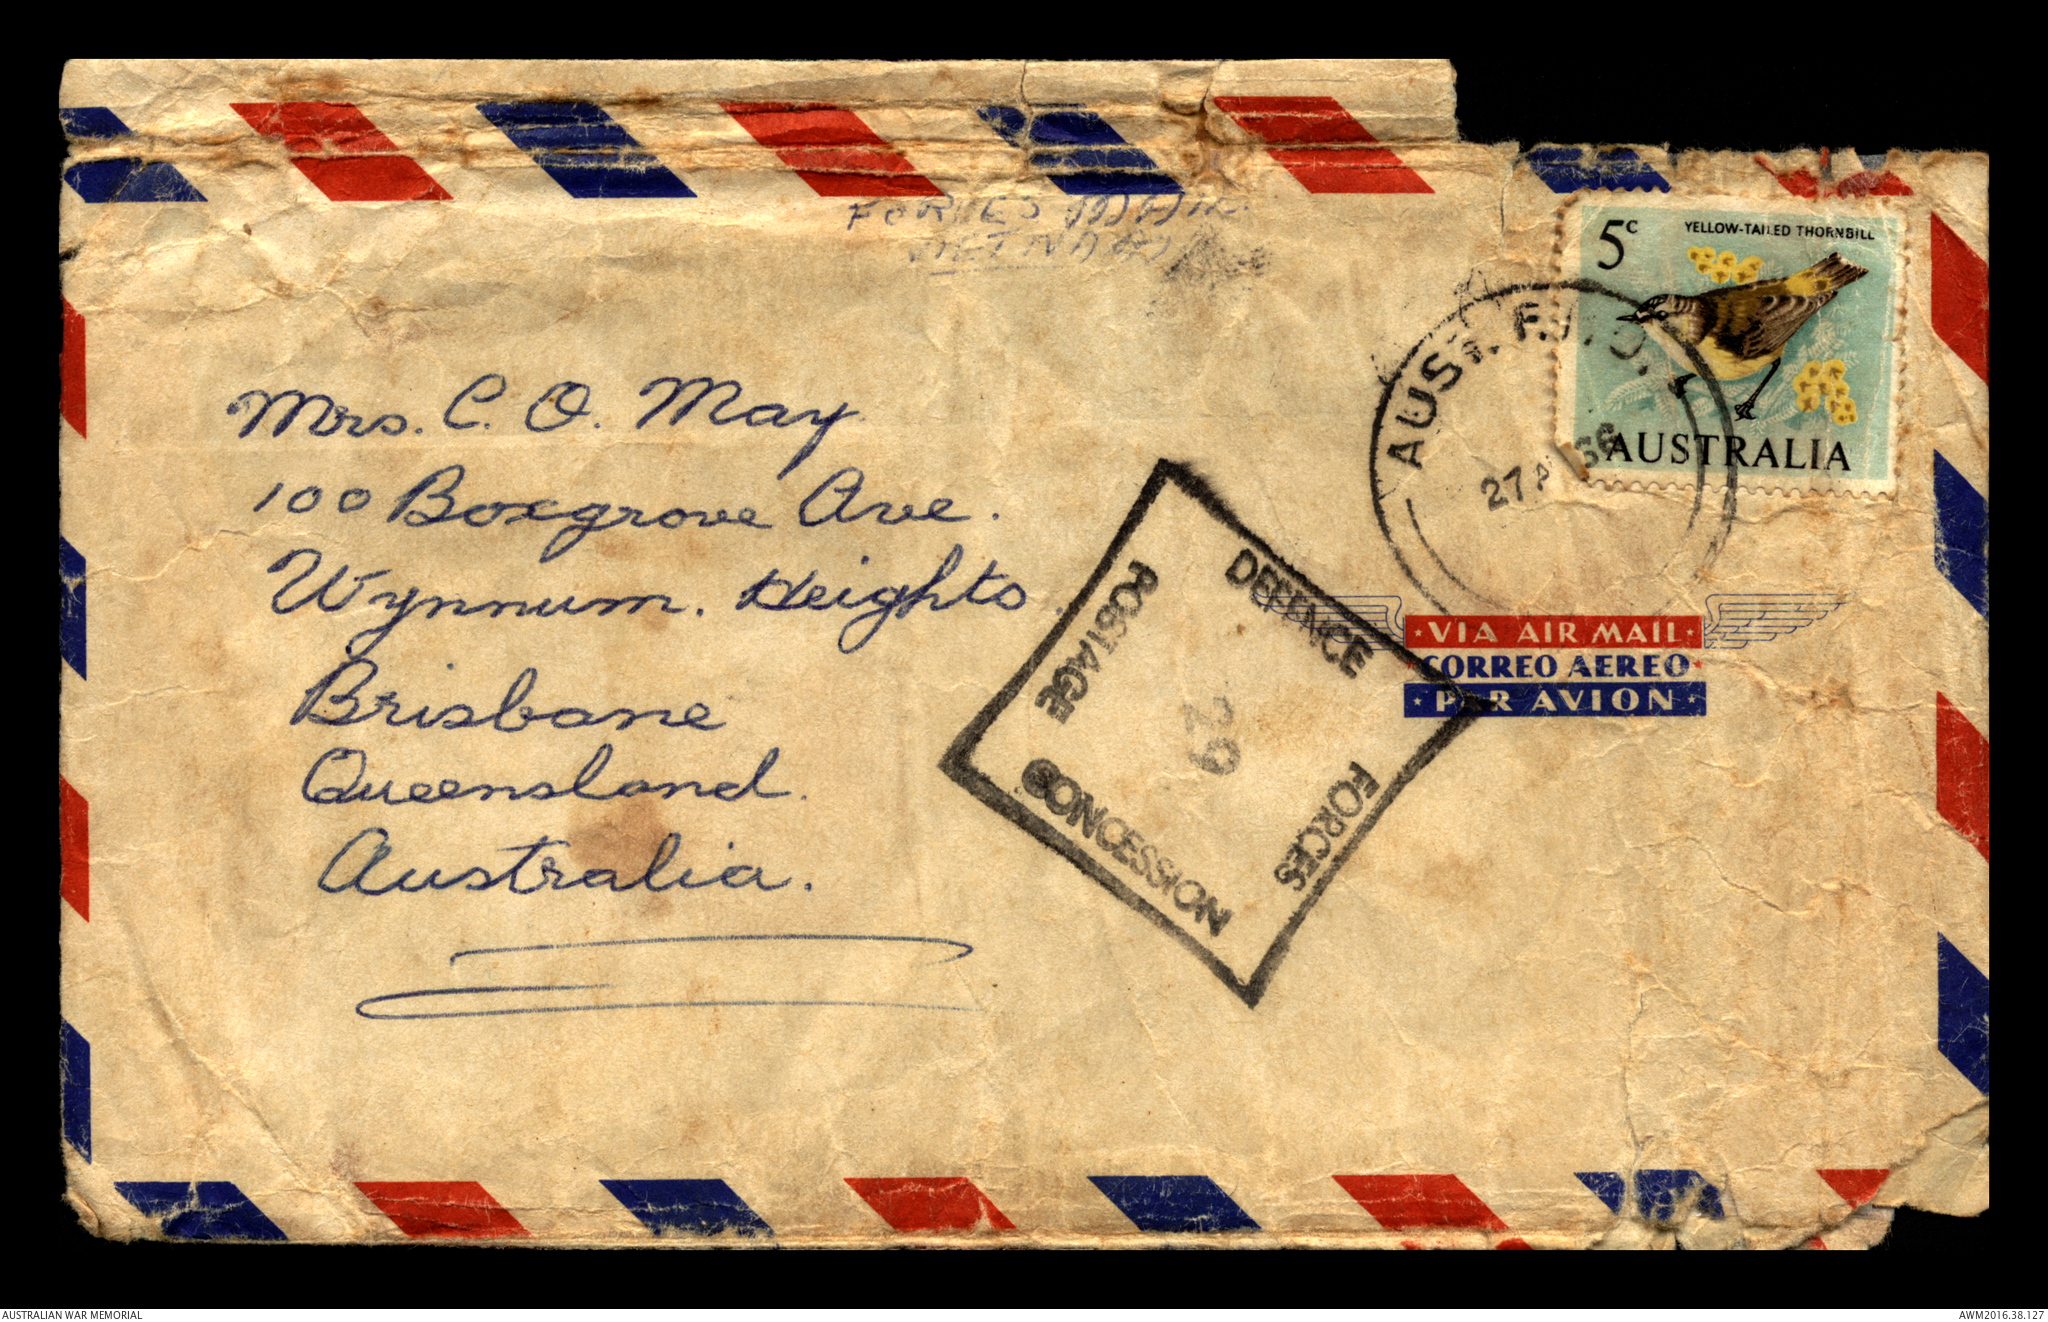 FORCES MAIL
VIETNAM
5c YELLOW-TAILED THORNBILL
AUSTRALIA
AUST. F.P.O.
27 66
Mrs. C. O. May
100 Boxgrove Ave.
Wynnum. Heights.
Brisbane
Queensland.
Australia.
DEFENCE
FORCES
POSTAGE
CONCESSION
29
VIA AIR MAIL
CORREO AEREO
PAR AVION
AUSTRALIAN WAR MEMORIAL
AWM2016.38.127